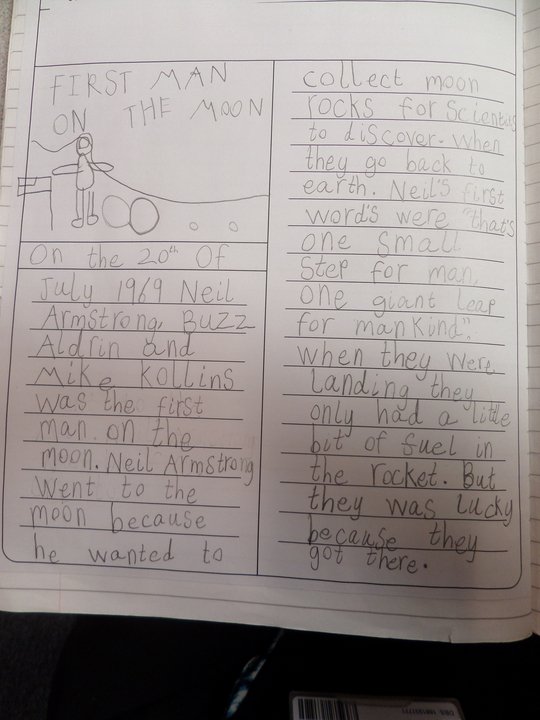 FIRST MAN
ON THE MOON
On the 20th Of
July 1969 Neil
Armstrong, Buzz
Aldrin and
Mike Kollins
was the first
man on the
moon. Neil Armstrong
went to the
moon because
he wanted to
collect moon
rocks for Scientists
to discover. when
they go back to
earth. Neil's first
word's were "that's
one small
Step for man,
one giant leap
for mankind".
when they were
landing they
only had a little
bit of fuel in
the rocket. But
they was lucky
because they
got there.